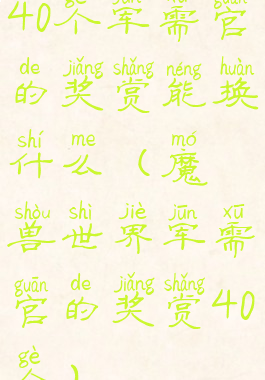 gè jūn xū guān
40个军需官
de jiǎng shǎng néng huàn
的奖赏能换
shí me mó
什么(魔
shòu shì jiè jūn xū
兽世界军需
guān de jiǎng shǎng
官的奖赏40
gè
个)